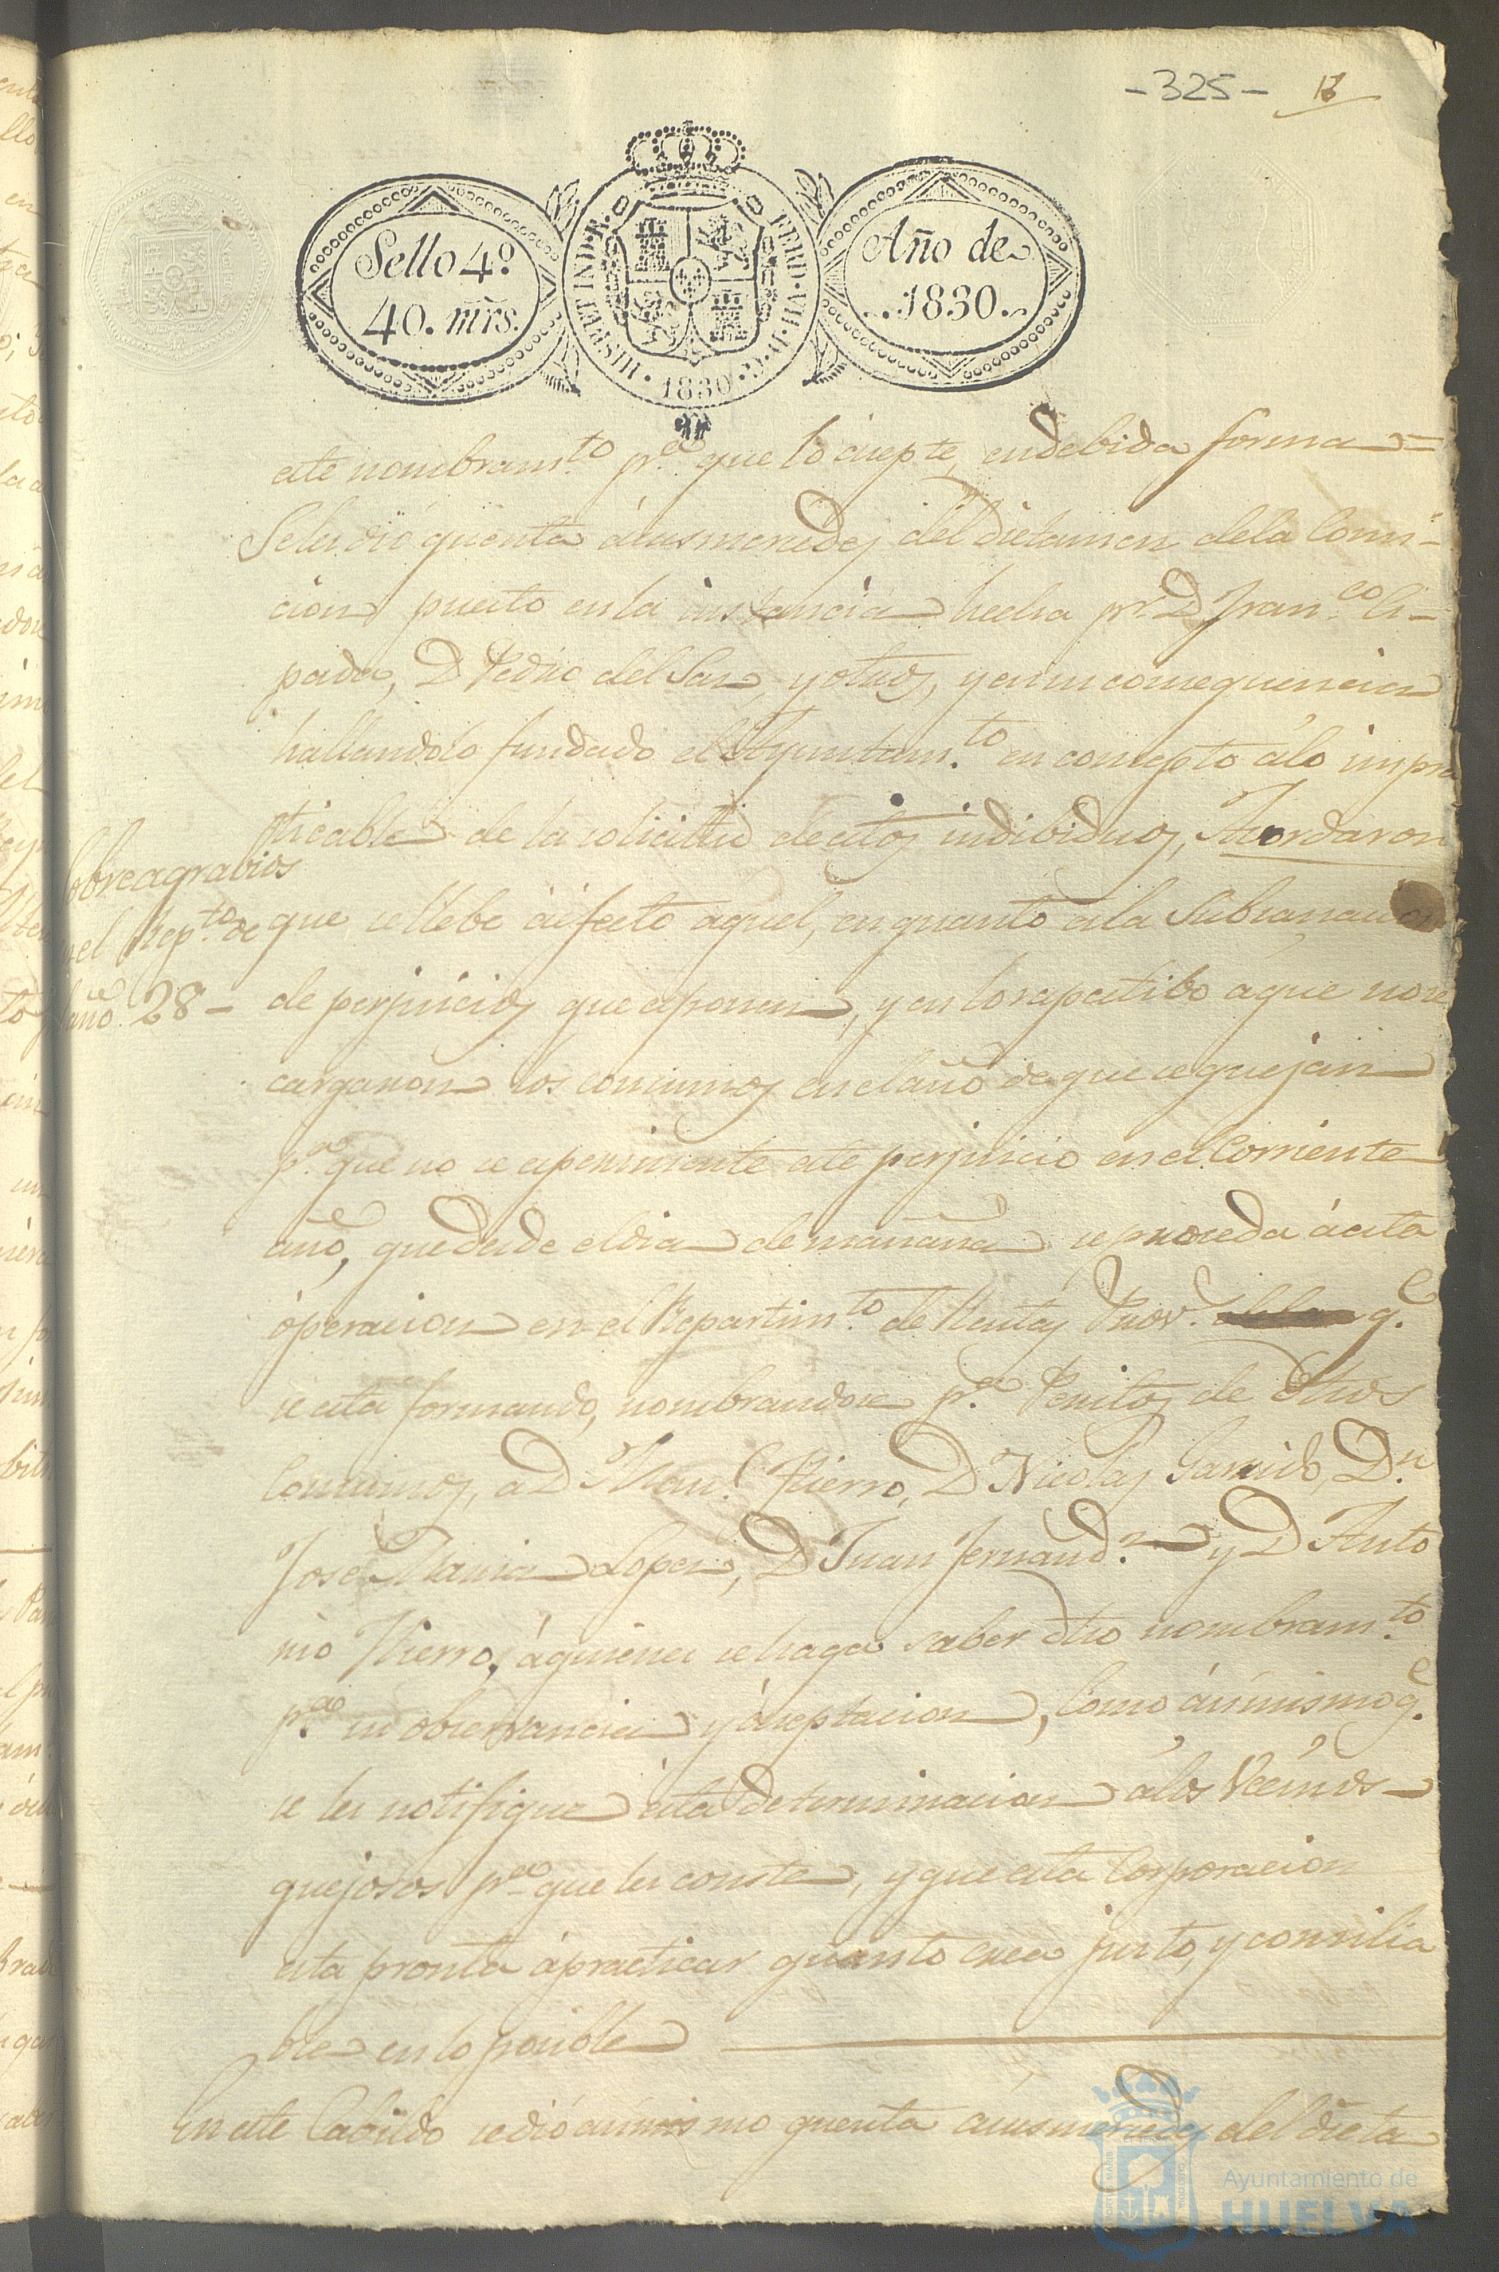 -325- 
Sello 4º
40. mrs.
HISP. ET IND. R. FERD. VII. D. G. 1830
Año de
1830.
este nombramto pa que lo acepte, en debida forma=
Se les dió quenta á sus mercedes del Dictamen dela Comi-
cion puesto en la instancia hecha pr D Franco Ci-
pada, D Pedro del Saz, y otros, y en su consequencia
hallandolo fundado el Ayuntamto en concepto á lo impra
ticable de la solicitud de estos indibiduos, Acordaron
Sobre agrabios
en el Reptto de
año 28-
que se llebe á efecto aquel, en quanto a la Subsanacion
de perjuicios que esponen, y en lo respectibo a que no se
cargaron los consumos en el año de que se quejan
pa que no se esperimente este perjuicio en el Corriente
año, que desde el dia de mañana se proceda á esta
óperacion en el Repartimto de Rentas Prov. qe
se esta formando, nombrandose pa Peritos de dhos
Consumos, a D Man.l Hierro, D Nicolas Garrido, Dn
José Maria Lopez, D Juan Fernandz y D Anto
nio Hierro, á quienes se haga saber dho nombramto
pa su obserbancia y áceptacion, Como ásimismo qe
se les notifique ésta determinacion á los Vecinos
quejosos pa que les conste, y que esta Corporacion
esta pronta á practicar quanto crea justo, y consilia
ble en lo posible
En este Cabildo se dió asimismo quenta á sus mercedes del dicta
Ayuntamiento de
HUELVA